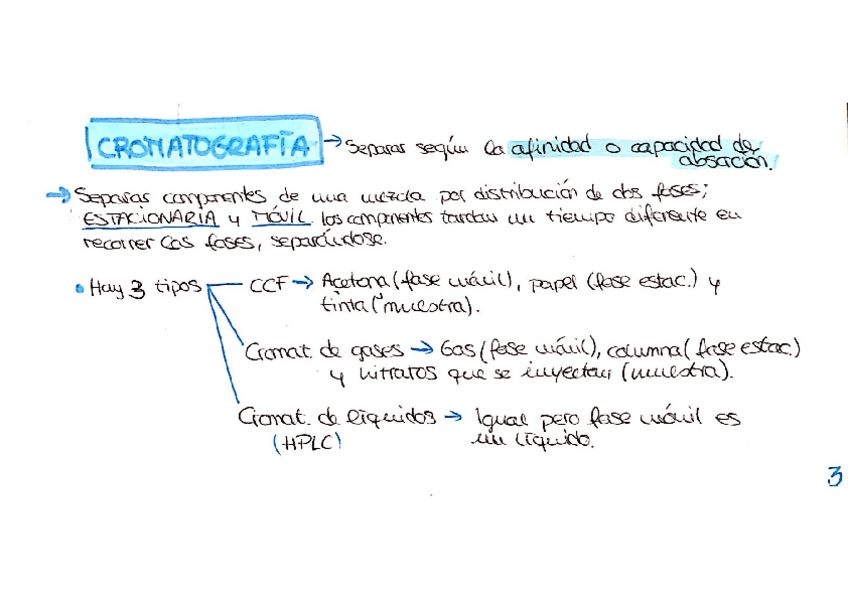 CROMATOGRAFÍA → Separar según la afinidad o capacidad de
absación.
→ Separas componentes de una mezcla por distribución de dos fases;
ESTACIONARIA y MÓVIL. Los componentes tardan un tiempo diferente en
recorrer las fases, separándose.
• Hay 3 tipos
CCF → Acetona (fase móvil), papel (fase estac.) y
tinta (muestra).
Cromat. de gases → Gas (fase móvil), columna (fase estac.)
y nitratos que se inyectan (muestra).
Cromat. de líquidos → Igual pero fase móvil es
(HPLC) un líquido.
3